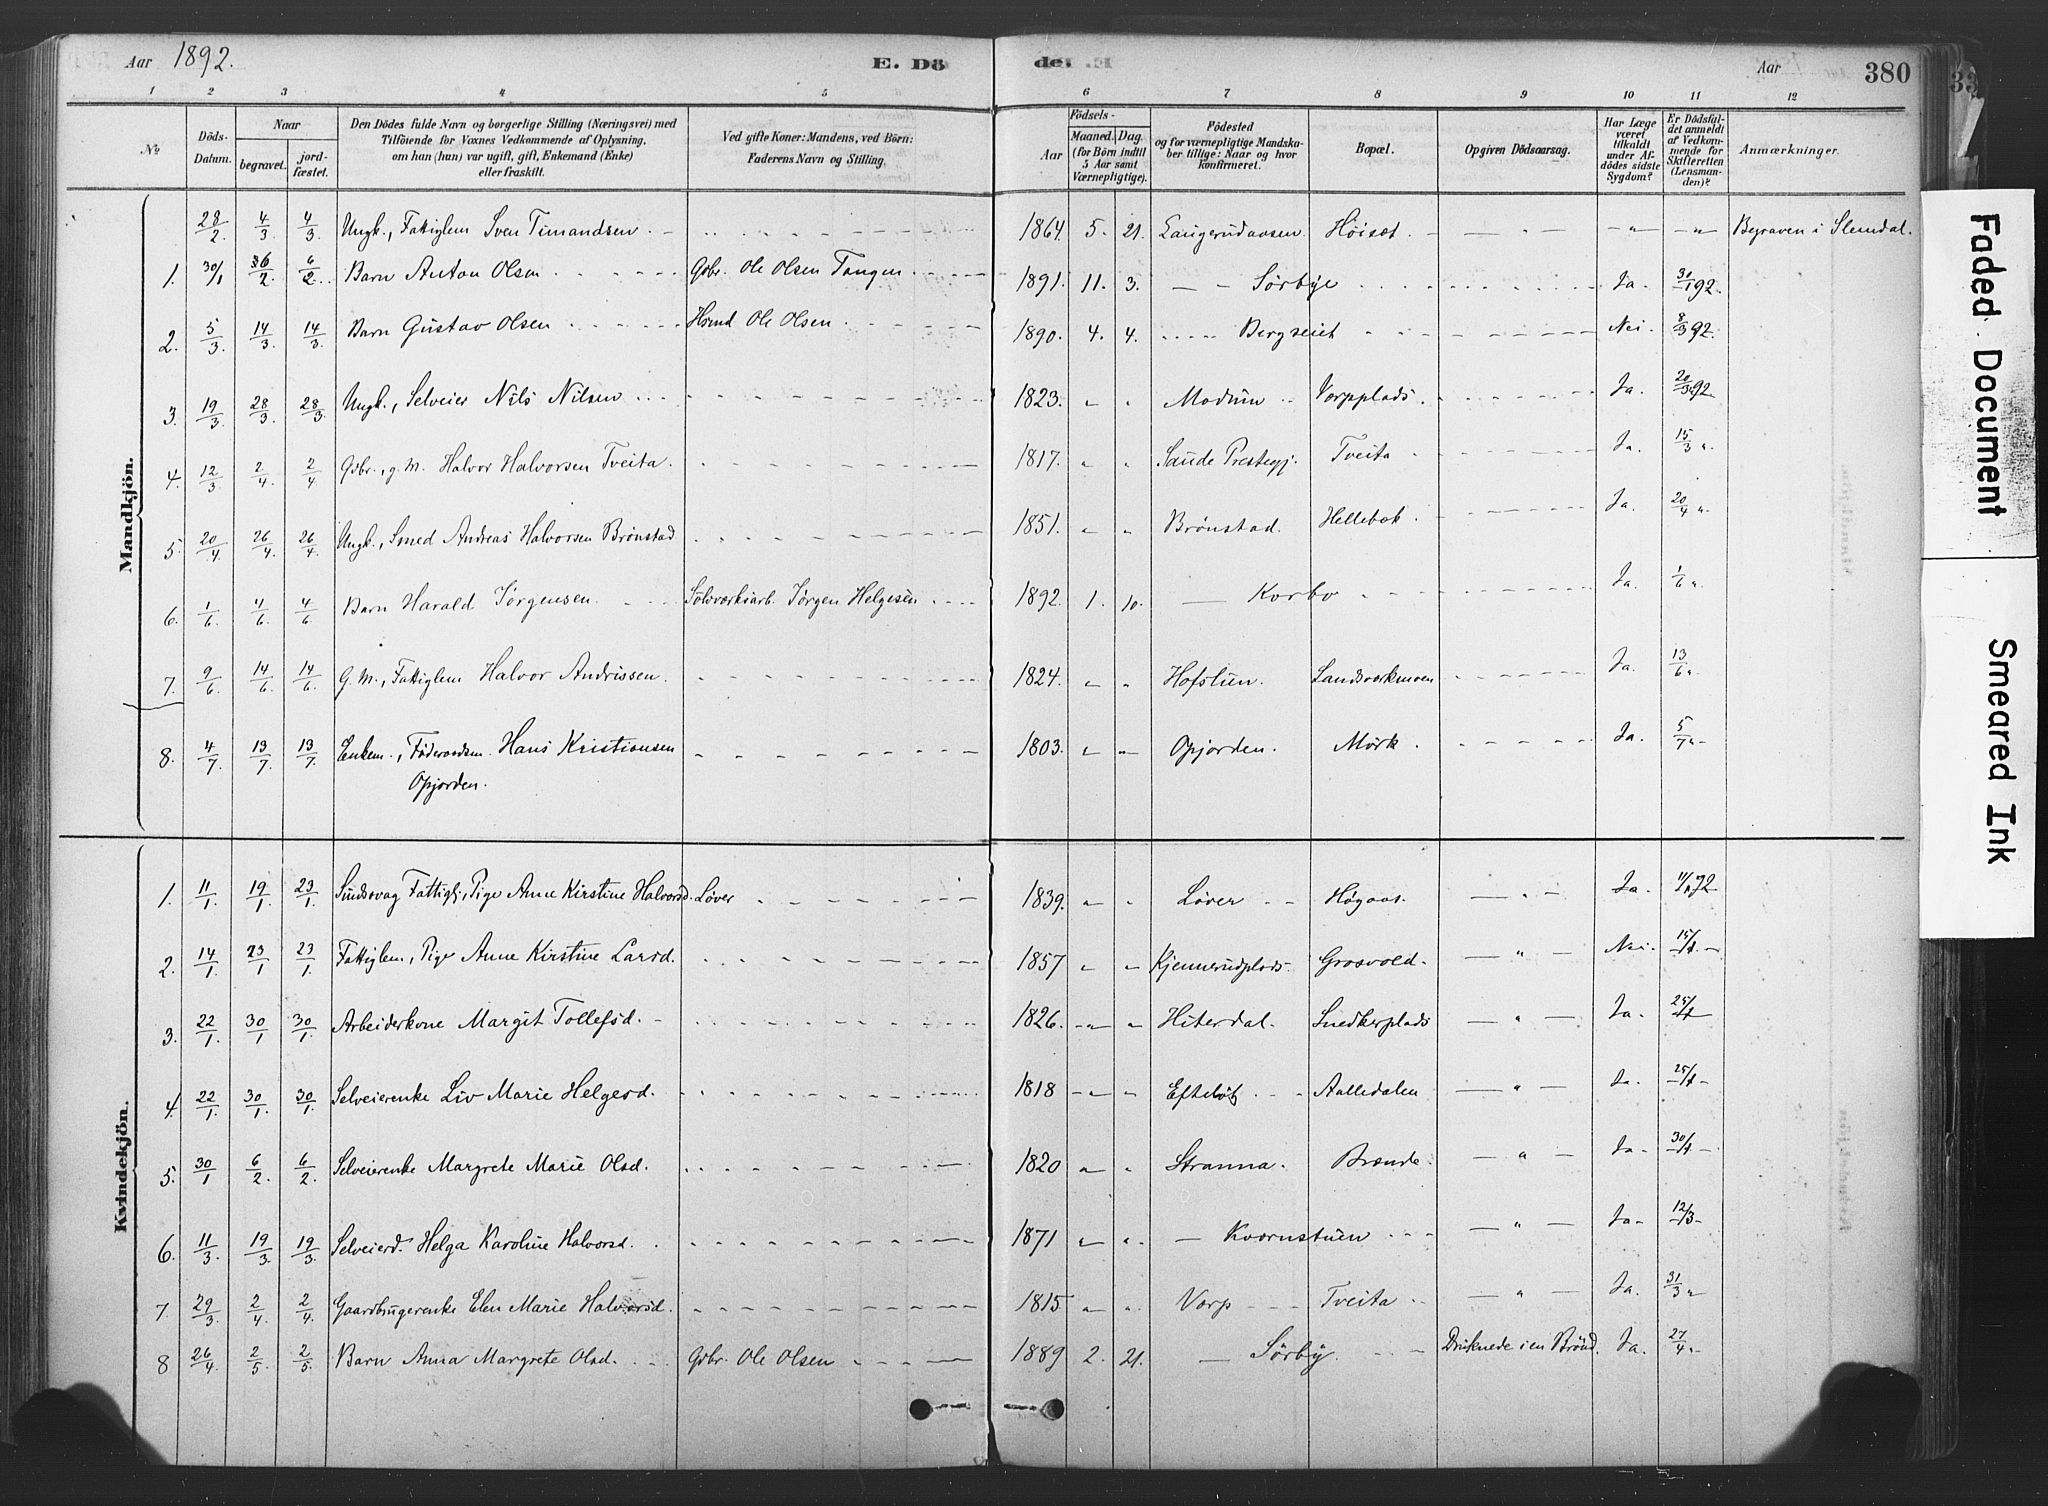 Aar 1892. E. Dö de. Aar 380
1 2 3 4 5 6 7 8 9 10 11 12
№ Döds-Datum. Naar begravet. jordfæstet. Den Dödes fulde Navn og borgerlige Stilling (Næringsvei) med Tilföiende for Voxnes Vedkommende af Oplysning, om han (hun) var ugift, gift, Enkemand (Enke) eller fraskilt. Ved gifte Koner: Mandens, ved Börn: Faderens Navn og Stilling. Födsels- Aar Maaned. Dag. (for Börn indtil 5 Aar samt Værnepligtige). Födested og for værnepligtige Mandskaber tillige: Naar og hvor konfirmeret. Bopæl. Opgiven Dödsaarsag. Har Læge været tilkaldt under Afdödes sidste Sygdom? Er Dödsfaldet anmeldt af Vedkommende for Skifteretten (Lensmanden)? Anmærkninger.
Mandkjön.
28/2 4/3 4/3 Ungk., Fattiglem Sven Timandsen 1864. 5. 21. Høiset " " Begraven i Slemdal.
1. 30/1 6/2 Barn Anton Olsen Gbr. Ole Olsen Tangen 1891. 11. 3. Sørbye Ja. 30/1 92.
2. 5/3. 14/3. 14/3. Barn Gustav Olsen Hsmd Ole Olsen 1890. 4. 4. Bergseiet Nei. 8/3 92.
3. 19/3. 28/3. 28/3. Ungk., Selveier Nils Nilsen 1823. " " Modum Vorpplads. Ja. 20/3 92
4. 12/3. 2/4 2/4 Gbr., g. M. Halvor Halvorsen Tveita. 1817. " " Saude Prestegj. Tveita Ja. 15/3 "
5. 20/4. 26/4. 26/4. Ungk., Smed Andreas Halvorsen Brønstad 1851. " " Brønstad. Hellebæk. Ja. 20/4 "
6. 1/6. 4/6. 4/6. Barn Harald Jørgensen. Sølvverksarb. Jørgen Helgesen 1892. 1. 10. Korbo Ja. 1/6 "
7. 9/6. 14/6. 14/6. G. M., Fattiglem Halvor Andrissen. 1824. " " Hofstuen. Landsverkmoen Ja. 13/6 "
8. 4/7. 13/7. 13/7. Enkem., Føderaadsm. Hans Kristiansen 1803. " " Opjorden. Mørk. Ja. 5/7 "
Opjorden.
Kvindekjön.
1. 11/1. 19/1. 23/1. Sindssvag Fattigl., Pige Anne Kirstine Halvorsd. Løver 1839. " " Løver Høgaas. " Ja. 11/1 92
2. 14/1. 23/1 23/1. Fattiglem, Pige Anne Kirstine Larsd. 1857 " " Kjennerudplads Grosvold. " Nei. 15/1
3. 22/1. 30/1 30/1. Arbeiderkone Margit Tollefsd. 1826. " " Hiterdal. Snedkerplads " Ja. 25/1
4. 22/1. 30/1. 30/1. Selveierenke Liv Marie Helgesd. 1818 " " Efteløt Aalledalen " Ja. 25/1
5. 30/1 6/2. 6/2. Selveierenke Margrete Marie Olsd. 1820 " " Stranna. " Ja. 30/1
6. 11/3. 19/3. 19/3. Selveierd. Helga Karoline Halvorsd. 1871 " " Kvernstuen " Ja 12/3
7. 29/3. 2/4. 2/4. Gaardbrugerenke Elen Marie Halvorsd. 1815 " " Vorp Tveita " Ja. 31/3 "
8 26/4. 2/5. 2/5. Barn Anna Margrete Olsd. Gbr. Ole Olsen 1889 2. 21. Sørby. Druknede i en Brønd. Ja. 27/4 "
Faded Document
Smeared Ink